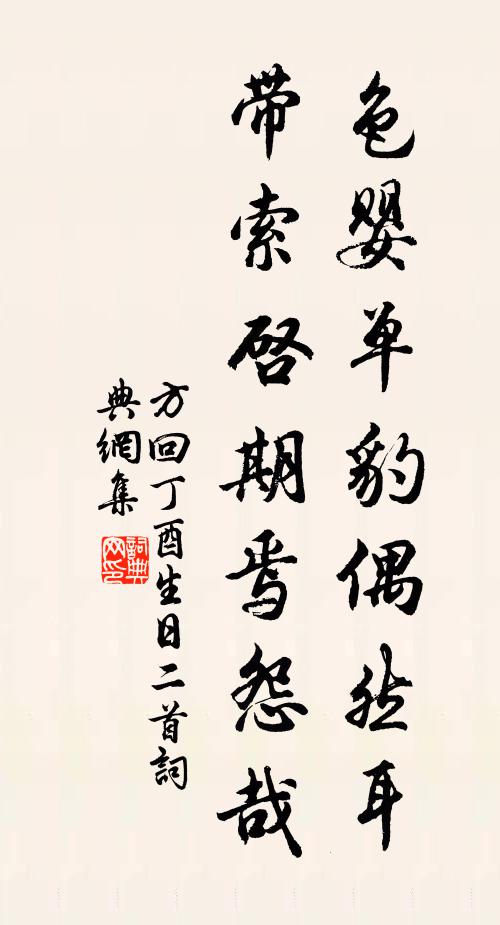 色婴单豹偶然耳
带索启期焉怨哉
方回丁酉生日二首詞
典網集
詞典网印